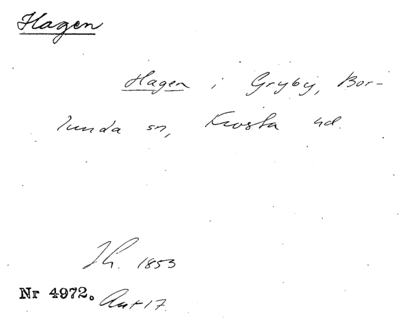 Hagen
Hagen i Gryby, Bor-
lunda sn, Frosta hd.
Jh. 1853
Nr 4972. Akt 17